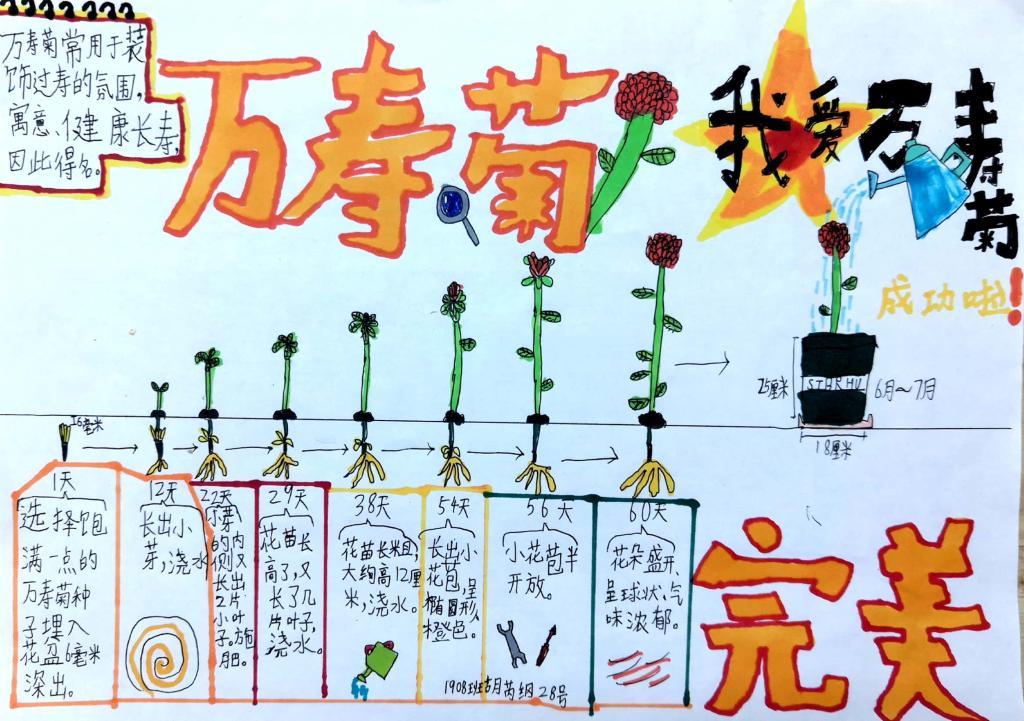 万寿菊常用于装
饰过寿的氛围,
寓意、健康长寿,
因此得名。
万寿菊
我爱万寿菊
成功啦!
25厘米
6月~7月
18厘米
16毫米
1天
选择饱
满一点的
万寿菊种
子埋入
花盆6毫米
深出。
12天
长出小
芽,浇水
22天
小芽
的内
侧又
长出
2片
小叶
子。施
肥。
29天
花苗长
高了,又
长了几
片叶子,
浇水。
38天
花苗长粗,
大约高12厘
米,浇水。
54天
长出小
花苞,呈
椭圆形,
橙色。
56天
小花苞半
开放。
60天
花朵盛开,
呈球状,气
味浓郁。
完美